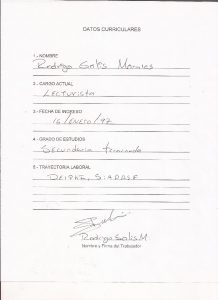 DATOS CURRICULARES
1.- NOMBRE
Rodrigo Solis Morales
2.- CARGO ACTUAL
Lecturista
3.- FECHA DE INGRESO
16/ENERO/97
4.- GRADO DE ESTUDIOS
Secundaria terminada
5.- TRAYECTORIA LABORAL
SIAPASE
Rodrigo Solis M
Nombre y Firma del Trabajador